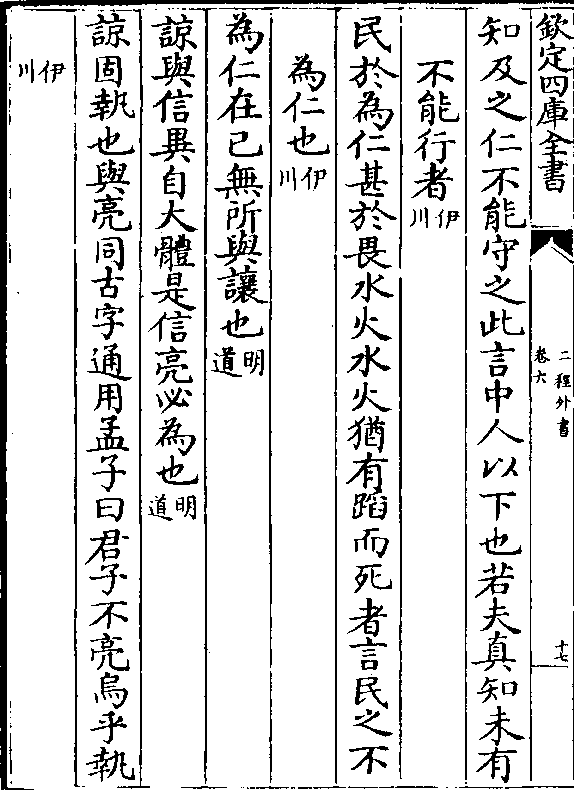 欽定四庫全書
二程外書
卷六
十七
知及之仁不能守之此言中人以下也若夫真知未有
不能行者伊川
民於為仁甚於畏水火水火猶有蹈而死者言民之不
為仁也伊川
為仁在已無所與讓也明道
諒與信異自大體是信亮必為也明道
諒固執也與亮同古字通用孟子曰君子不亮烏乎執
伊川